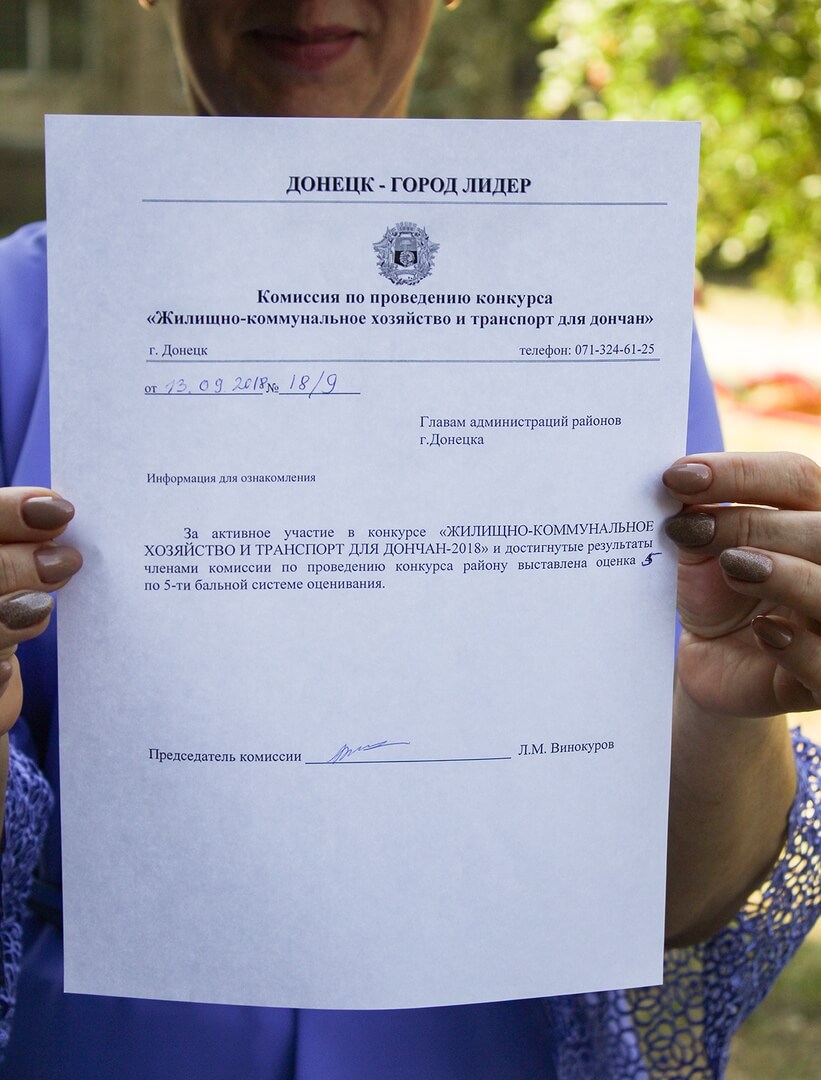 ДОНЕЦК - ГОРОД ЛИДЕР
Комиссия по проведению конкурса
«Жилищно-коммунальное хозяйство и транспорт для дончан»
г. Донецк телефон: 071-324-61-25
от 13.09.2018 № 18/9
Главам администраций районов
г.Донецка
Информация для ознакомления
За активное участие в конкурсе «ЖИЛИЩНО-КОММУНАЛЬНОЕ
ХОЗЯЙСТВО И ТРАНСПОРТ ДЛЯ ДОНЧАН-2018» и достигнутые результаты
членами комиссии по проведению конкурса району выставлена оценка 5
по 5-ти бальной системе оценивания.
Председатель комиссии Л.М. Винокуров